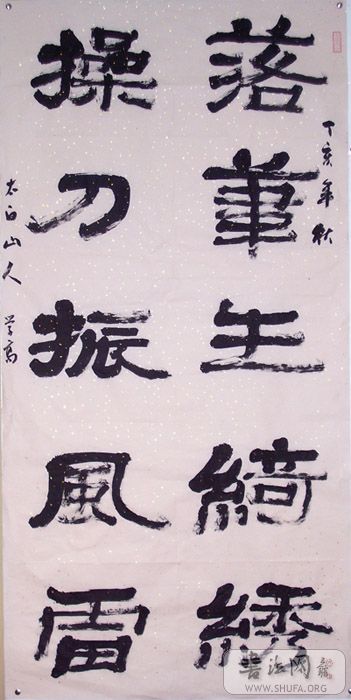 丁亥年秋
落筆生綺綉
操刀振風雷
太白山人 学高
書法网
WWW.SHUFA.ORG